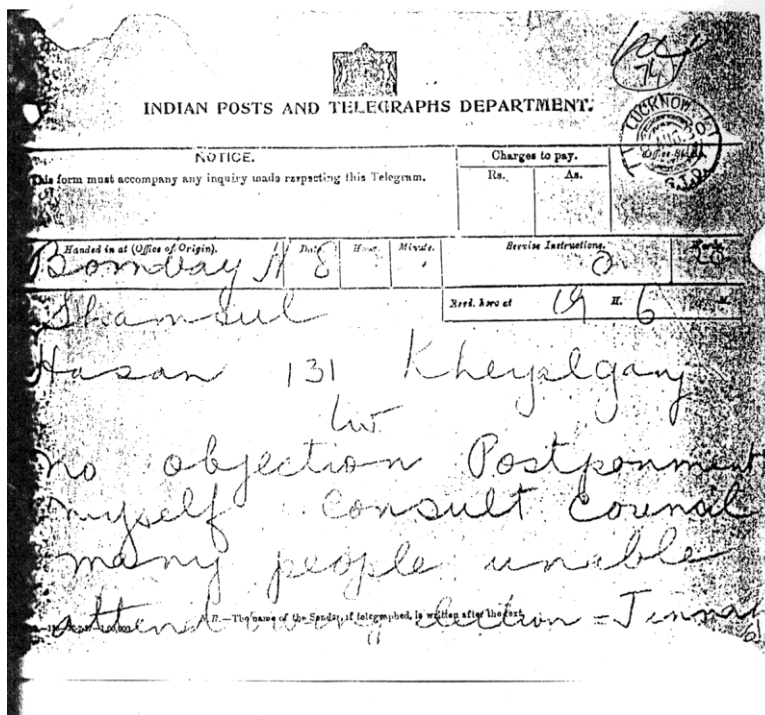 INDIAN POSTS AND TELEGRAPHS DEPARTMENT.
LUCKNOW
NOTICE.
This form must accompany any inquiry made respecting this Telegram.
Charges to pay.
Rs. As.
Handed in at (Office of Origin). Date. Hour. Minute. Service Instructions. Words.
Bombay H 8 20
Recd. here at 19 H. 6 M.
Shamsul
Hasan 131 Kheyalganj
Lw
no objection Postponment
myself consult Counal
many people unable
attend owing election = Jinnah
N.B.—The name of the Sender, if telegraphed, is written after the text.